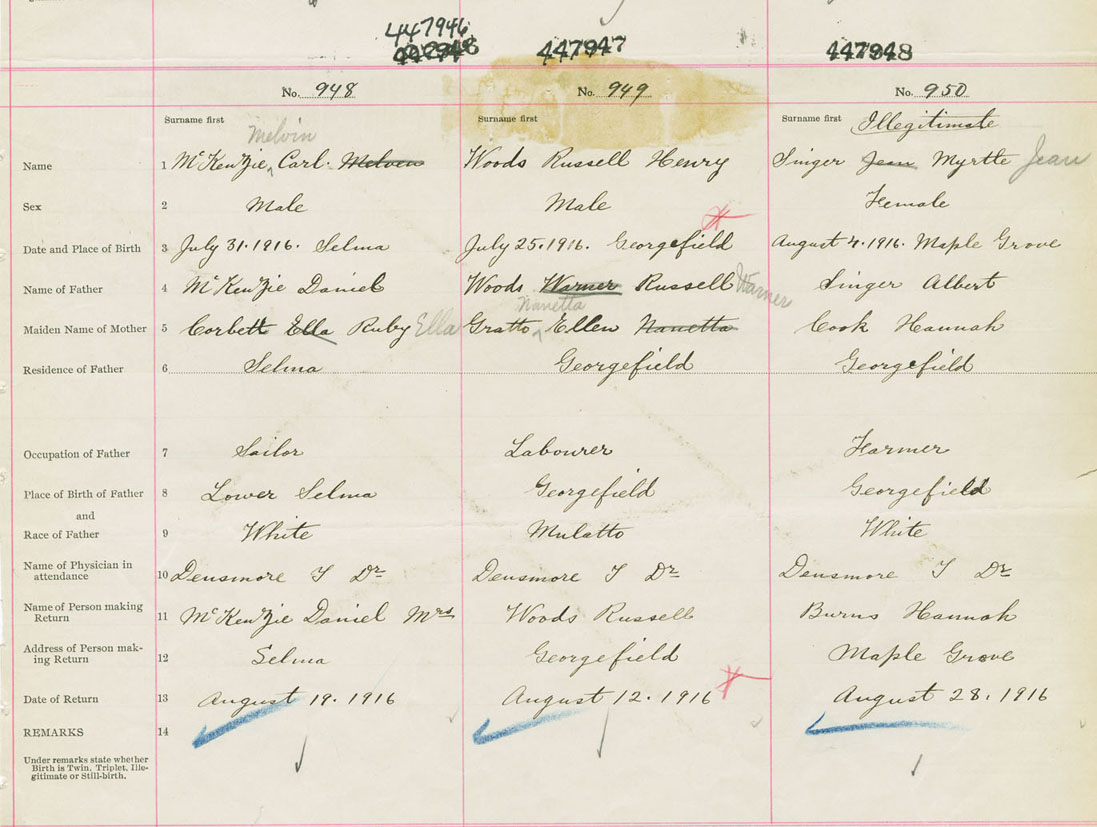 447946
447947 447948
No. 948 No. 949 No. 950
Surname first Surname first Surname first Illegitimate
Melvin
Name 1 McKenzie, Carl. Melven Woods Russell Henry Singer Jean Myrtle Jean
Sex 2 Male Male Female
Date and Place of Birth 3 July 31. 1916. Selma July 25. 1916. Georgefield August 4. 1916. Maple Grove
Name of Father 4 McKenzie Daniel Woods Warner Russell Warner Singer Albert
Nanetta
Maiden Name of Mother 5 Corbett Ella Ruby Ella Gratto Ellen Nanetta Cook Hannah
Residence of Father 6 Selma Georgefield Georgefield
Occupation of Father 7 Sailor Labourer Farmer
Place of Birth of Father 8 Lower Selma Georgefield Georgefield
and
Race of Father 9 White Mulatto White
Name of Physician in
attendance 10 Densmore T Dr Densmore T Dr Densmore T Dr
Name of Person making
Return 11 McKenzie Daniel Mrs Woods Russell Burns Hannah
Address of Person mak-
ing Return 12 Selma Georgefield Maple Grove
Date of Return 13 August 19. 1916 August 12. 1916 August 28. 1916
REMARKS 14
Under remarks state whether
Birth is Twin, Triplet, Ille-
gitimate or Still-birth.